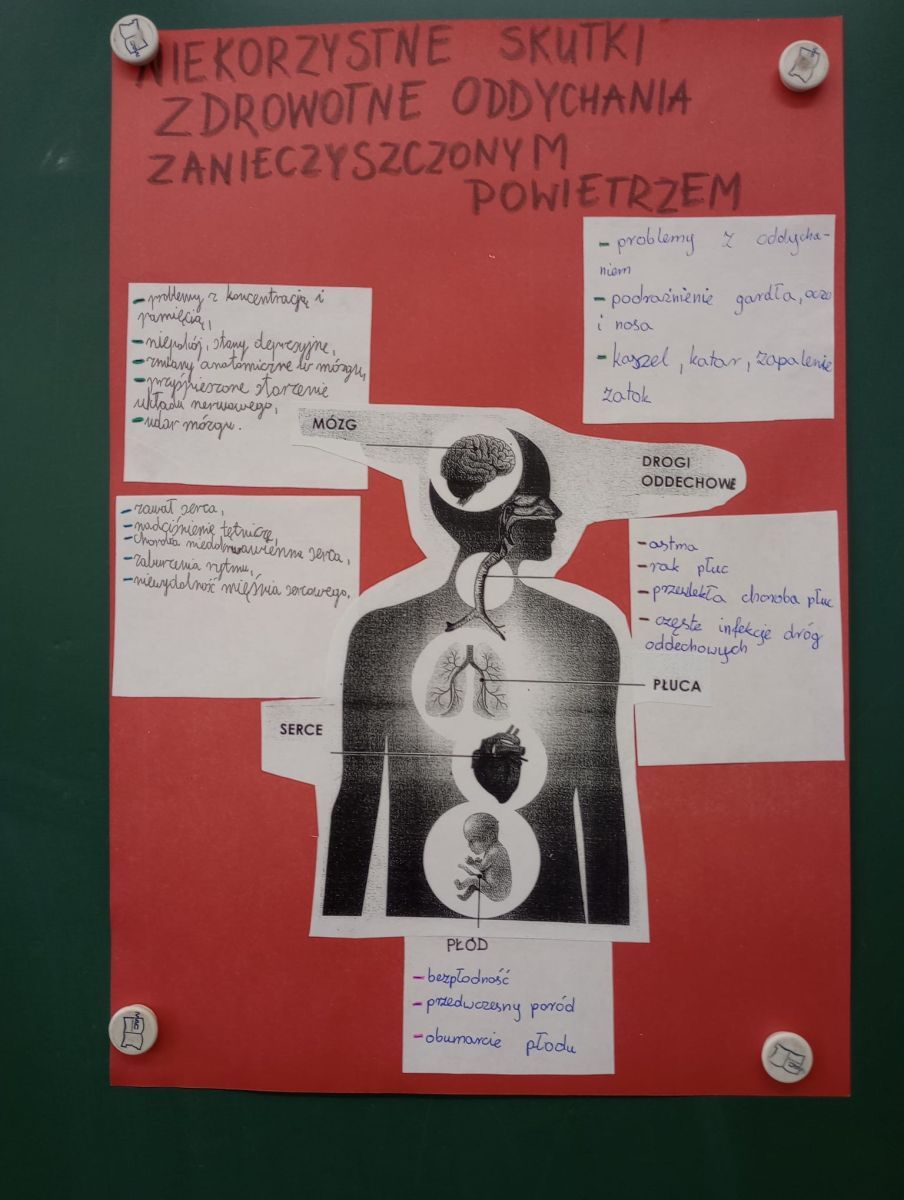 NIEKORZYSTNE SKUTKI
ZDROWOTNE ODDYCHANIA
ZANIECZYSZCZONYM
POWIETRZEM
- problemy z oddycha-
niem
- podrażnienie gardła, oczu
i nosa
- kaszel, katar, zapalenie
zatok
- problemy z koncentracją i
pamięcią,
- niepokój, stany depresyjne,
- zmiany anatomiczne w mózgu,
- przyśpieszone starzenie
układu nerwowego,
- udar mózgu.
MÓZG
DROGI
ODDECHOWE
- zawał serca,
- nadciśnienie tętnicze,
- choroba niedokrwienna serca,
- zaburzenia rytmu,
- niewydolność mięśnia sercowego.
- astma
- rak płuc
- przewlekła choroba płuc
- częste infekcje dróg
oddechowych
PŁUCA
SERCE
PŁÓD
- bezpłodność
- przedwczesny poród
- obumarcie płodu
MAC